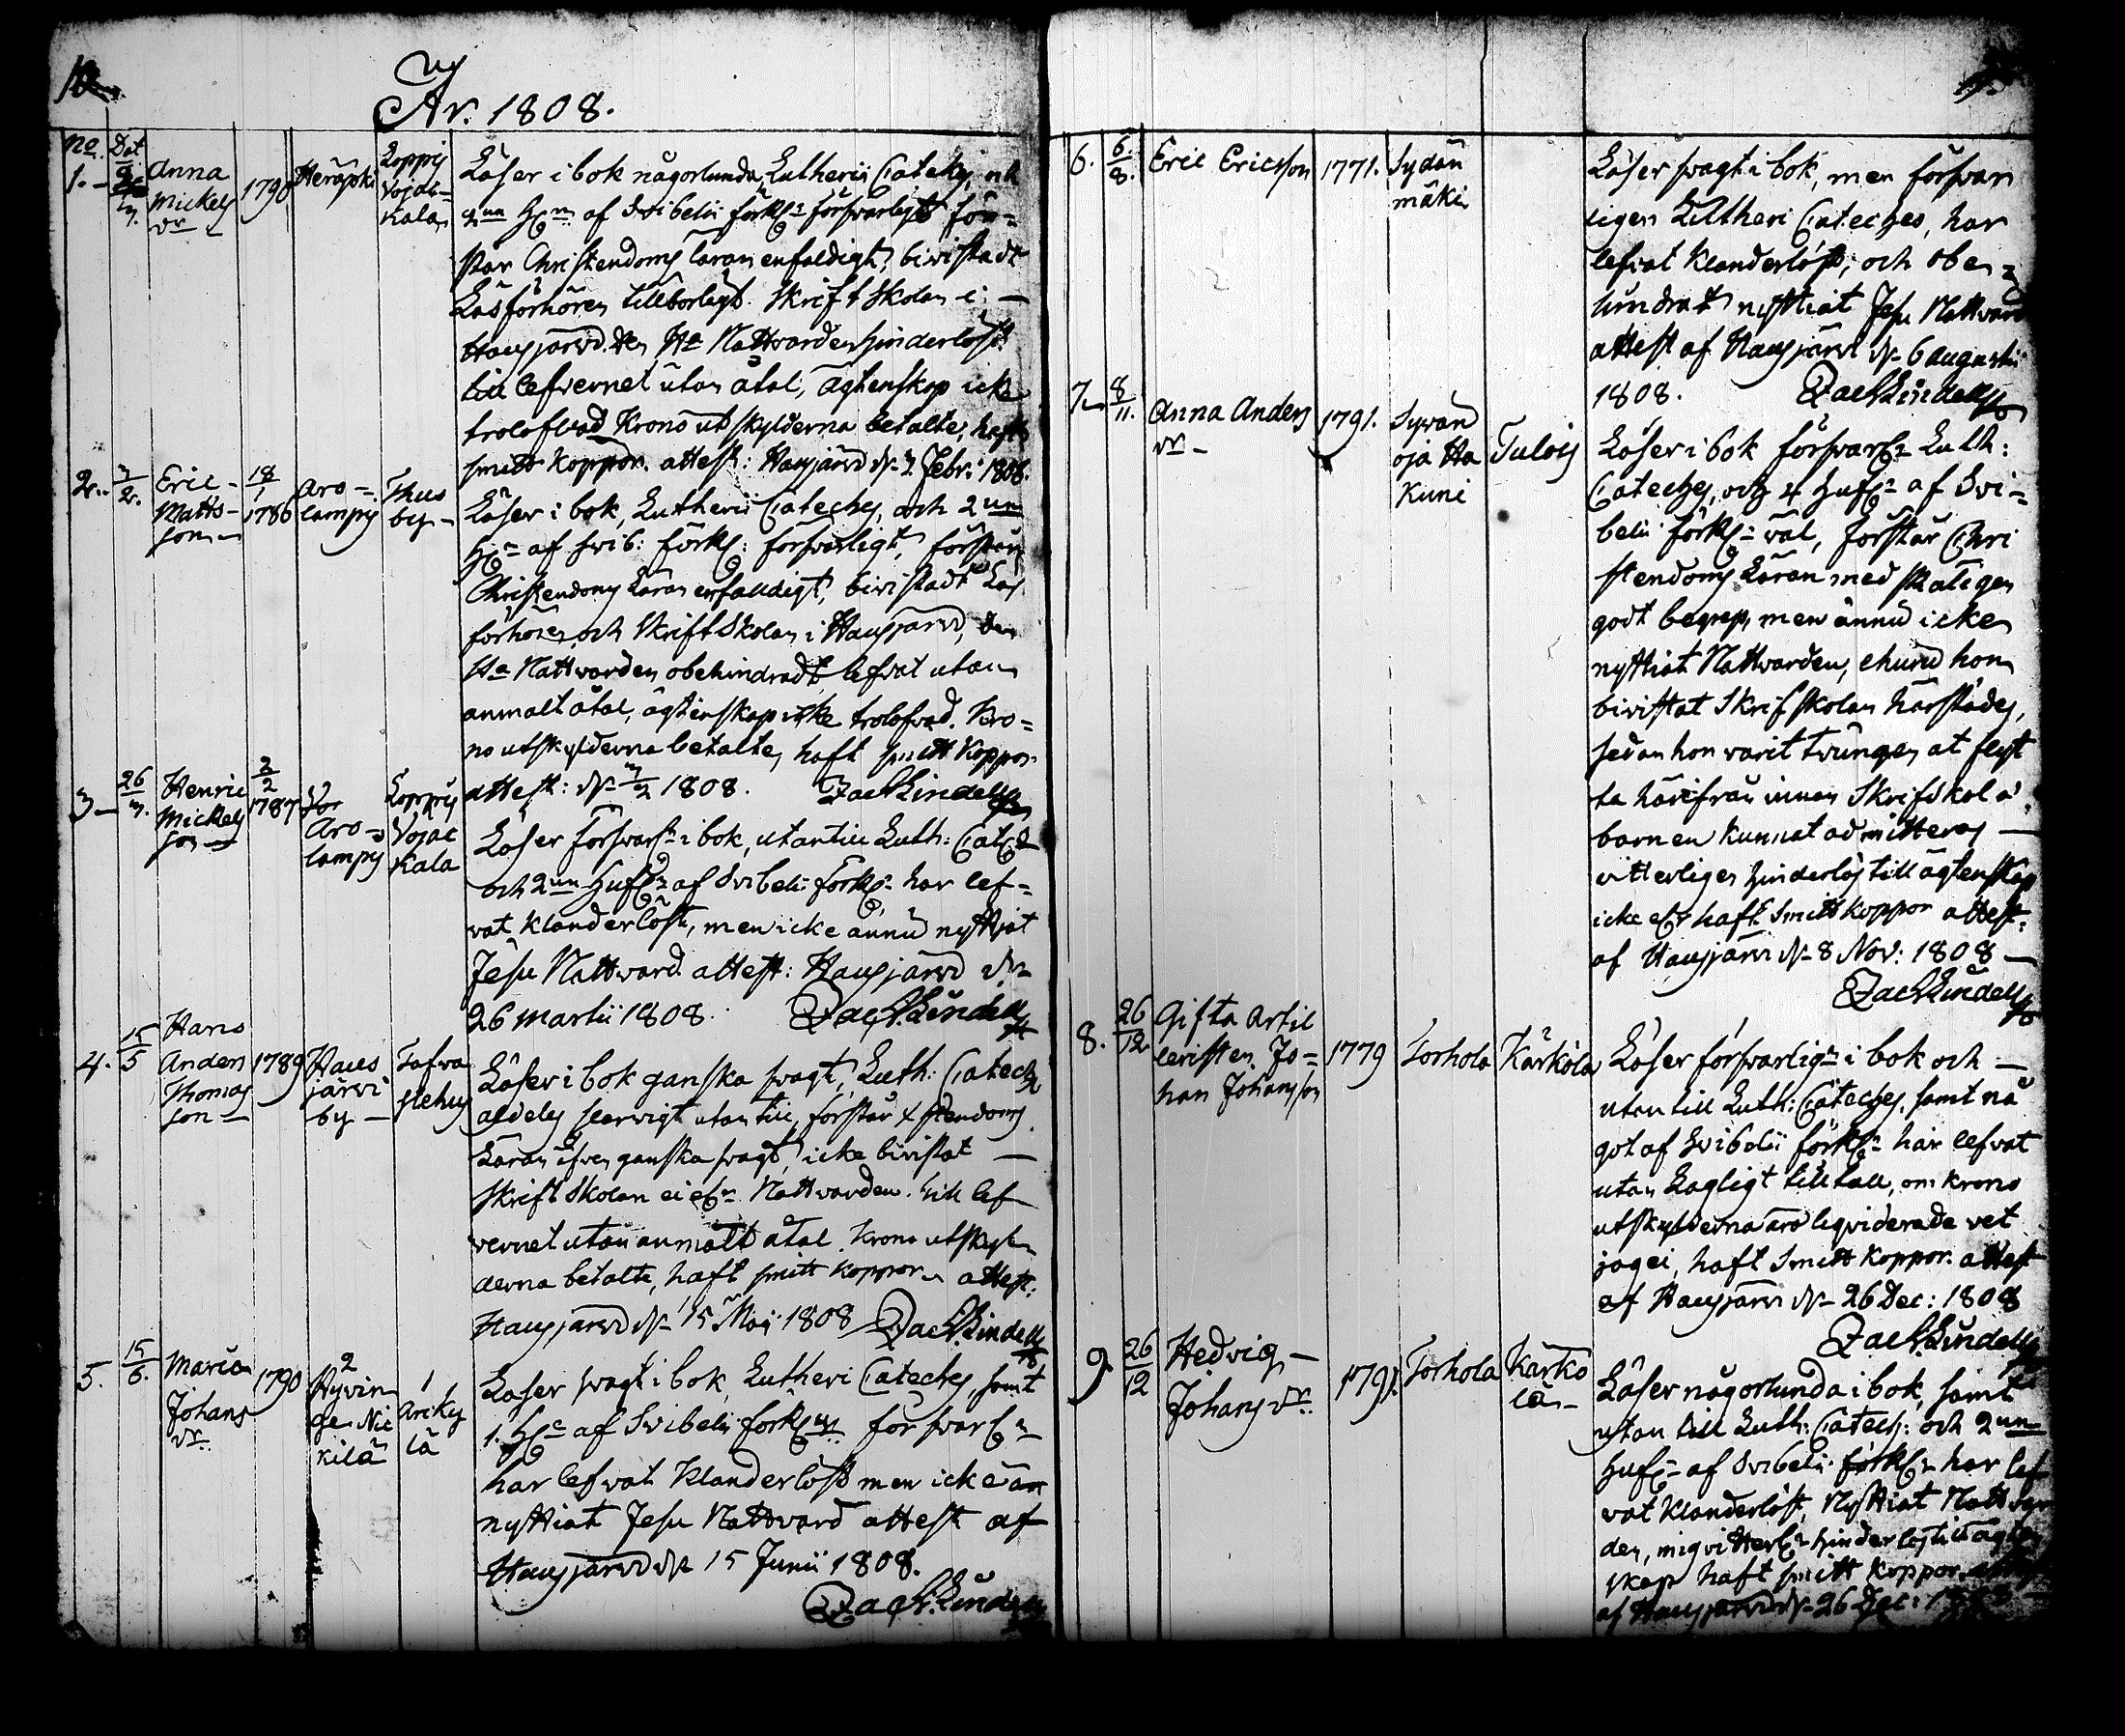 År. 1808.
No. Dat
1. Anna Mickels dr 1790 Herajoki Loppis Vojac=kala
Läser i bok någorlunda, Lutherii Cateches, och
2ne Hn af Svibelii förkl: försvarligt för=
står Christendoms läran enfaldigt, bivistadt
Läsförhören tillbörligt. Skrift Skolan i
Hausjärvi den Ha Nattvarden hinderlöst
till lefvernet utan åtal, ägtenskap icke
trolofvad Krono utskylderna betalte, haft
smitt Koppor. attest: Hausjärvi d. 3. Febr: 1808.
2. 3/2. Eric Mattsson 18/1 1786 Aro=lampis Thusby
Läser i bok, Lutherii Cateches, och 2ne
af svib: förkl: försvarligt, förstår
Christendoms Läran enfalldigt, bivistadt Läs
förhören och Skrift Skolan i Hausjärvi, den
Ha Nattvarden obehindradt, lefvat utan
anmält åtal, ägtenskap icke trolofvad. Kro=
no utskylderna betalte, haft smitt Koppor
attest: d. 3/2 1808. Zach Lindell
3. 26/3. Henric Mickelsson 2/2 1787 Aro=lampis Loppis Vojac kala
Läser försvarl: i bok, utantill Luth: Catech
och 2ne Hufn af Svibelii förkl: har lef=
vat klanderlöst, men icke ännu nyttjat
Jesu Nattvard. attest: Hausjärvi d.
26 Martii 1808. Zach. Lindell
4. 15/5 Hans Anders Thomasson 1789 Hausjärvi by Tafwastehus
Läser i bok ganska svagt, Luth: Catech
aldeles slarvigt utantill, förstår Xstendoms
Läran äfven ganska svagt, icke bivistat
Skrift Skolan ei el: Nattvarden. till lef
vernet utan anmält åtal. Krono utskyl
derna betalte, haft smitt Koppor attest:
Hausjärvi d. 15 Maj 1808 Zach. Lindell
5. 15/6. Maria Johans dr 1790 Hyvinge Nickilä Arckylä
Läser svagt i bok, Lutheri Cateches, samt
1. H. af Svibelii förkl: försvarl:
har lefvat Klanderlöst men icke än
nyttiat Jesu Nattvard attest af
Hausjärvi d. 15 Junii 1808.
Zach. Lindell
6. 6/8. Eric Ericsson 1771. Sydänmäki
Läser svagt i bok, men försvar
ligen Lutheri Cateches, har
lefvat Klanderlöst, och obe=
hindrat nyttiat Jesu Nattvard
attest af Hausjärvi d. 6 Augusti
1808. Zach Lindell
7. 8/11. Anna Anders dr 1791. Syvänoja Hakuni Tulois
Läser i bok försvarl: Luth:
Cateches, och 4 Hufn af Svi=
belii förkl: väl, förstår Chri
stendoms Läran med skäligen
godt begrep, men ännu icke
nyttiat Nattvarden, ehuru hon
bivistat Skrifskolan härstädes,
sedan hon varit tvungen at flyt
ta härifrån innan Skrifskola
barnen kunnat admitteras
vitterligen hinderlös till ägtenskap
icke el: haft Smitt koppor attest:
af Hausjärvi d. 8 Nov: 1808
Zach Lindell
8. 26/12 Gifta Artilleristen Johan Johansson 1779 Torhola Kärkölä
Läser försvarlig: i bok och
utan till Luth: Cateches, samt nå
got af Svibelii förkl: har lefvat
utan Lagligt tilltall, om krono
utskylderna äro liqviderade vet
jag ei, haft Smitt Koppor. attest
af Hausjärvi d. 26 Dec: 1808
Zach Lindell
9. 26/12 Hedvig Johans dr. 1791. Torhola Kärkölä
Läser någorlunda i bok, samt
utan till Luth: Catech: och 2ne
Hufn af Svibelii förkl: har lef
vat Klanderlöst, Nyttiat Nattvar
den, mig vitterl: hinderlös till ägten
skap haft smitt Koppor.
af Hausjärvi d. 26 Dec: